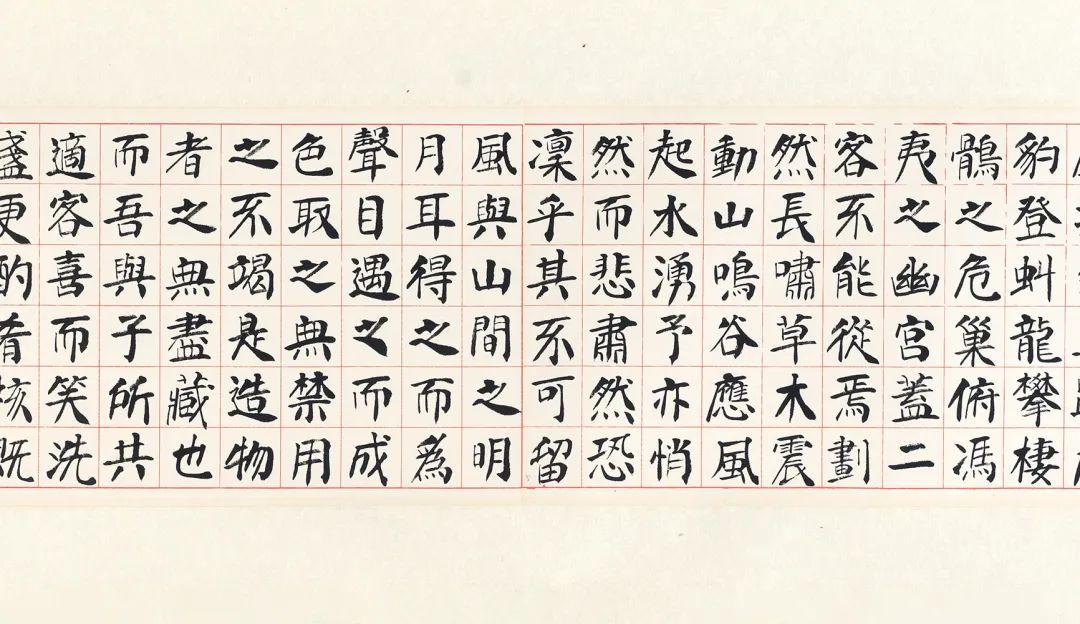 豹登虯龍攀棲
鶻之危巢俯馮
夷之幽宮蓋二
客不能從焉劃
然長嘯草木震
動山鳴谷應風
起水湧予亦悄
然而悲肅然恐
凜乎其不可留
風與山間之明
月耳得之而為
聲目遇之而成
色取之無禁用
之不竭是造物
者之無盡藏也
而吾與子所共
適客喜而笑洗
盞更酌肴核既